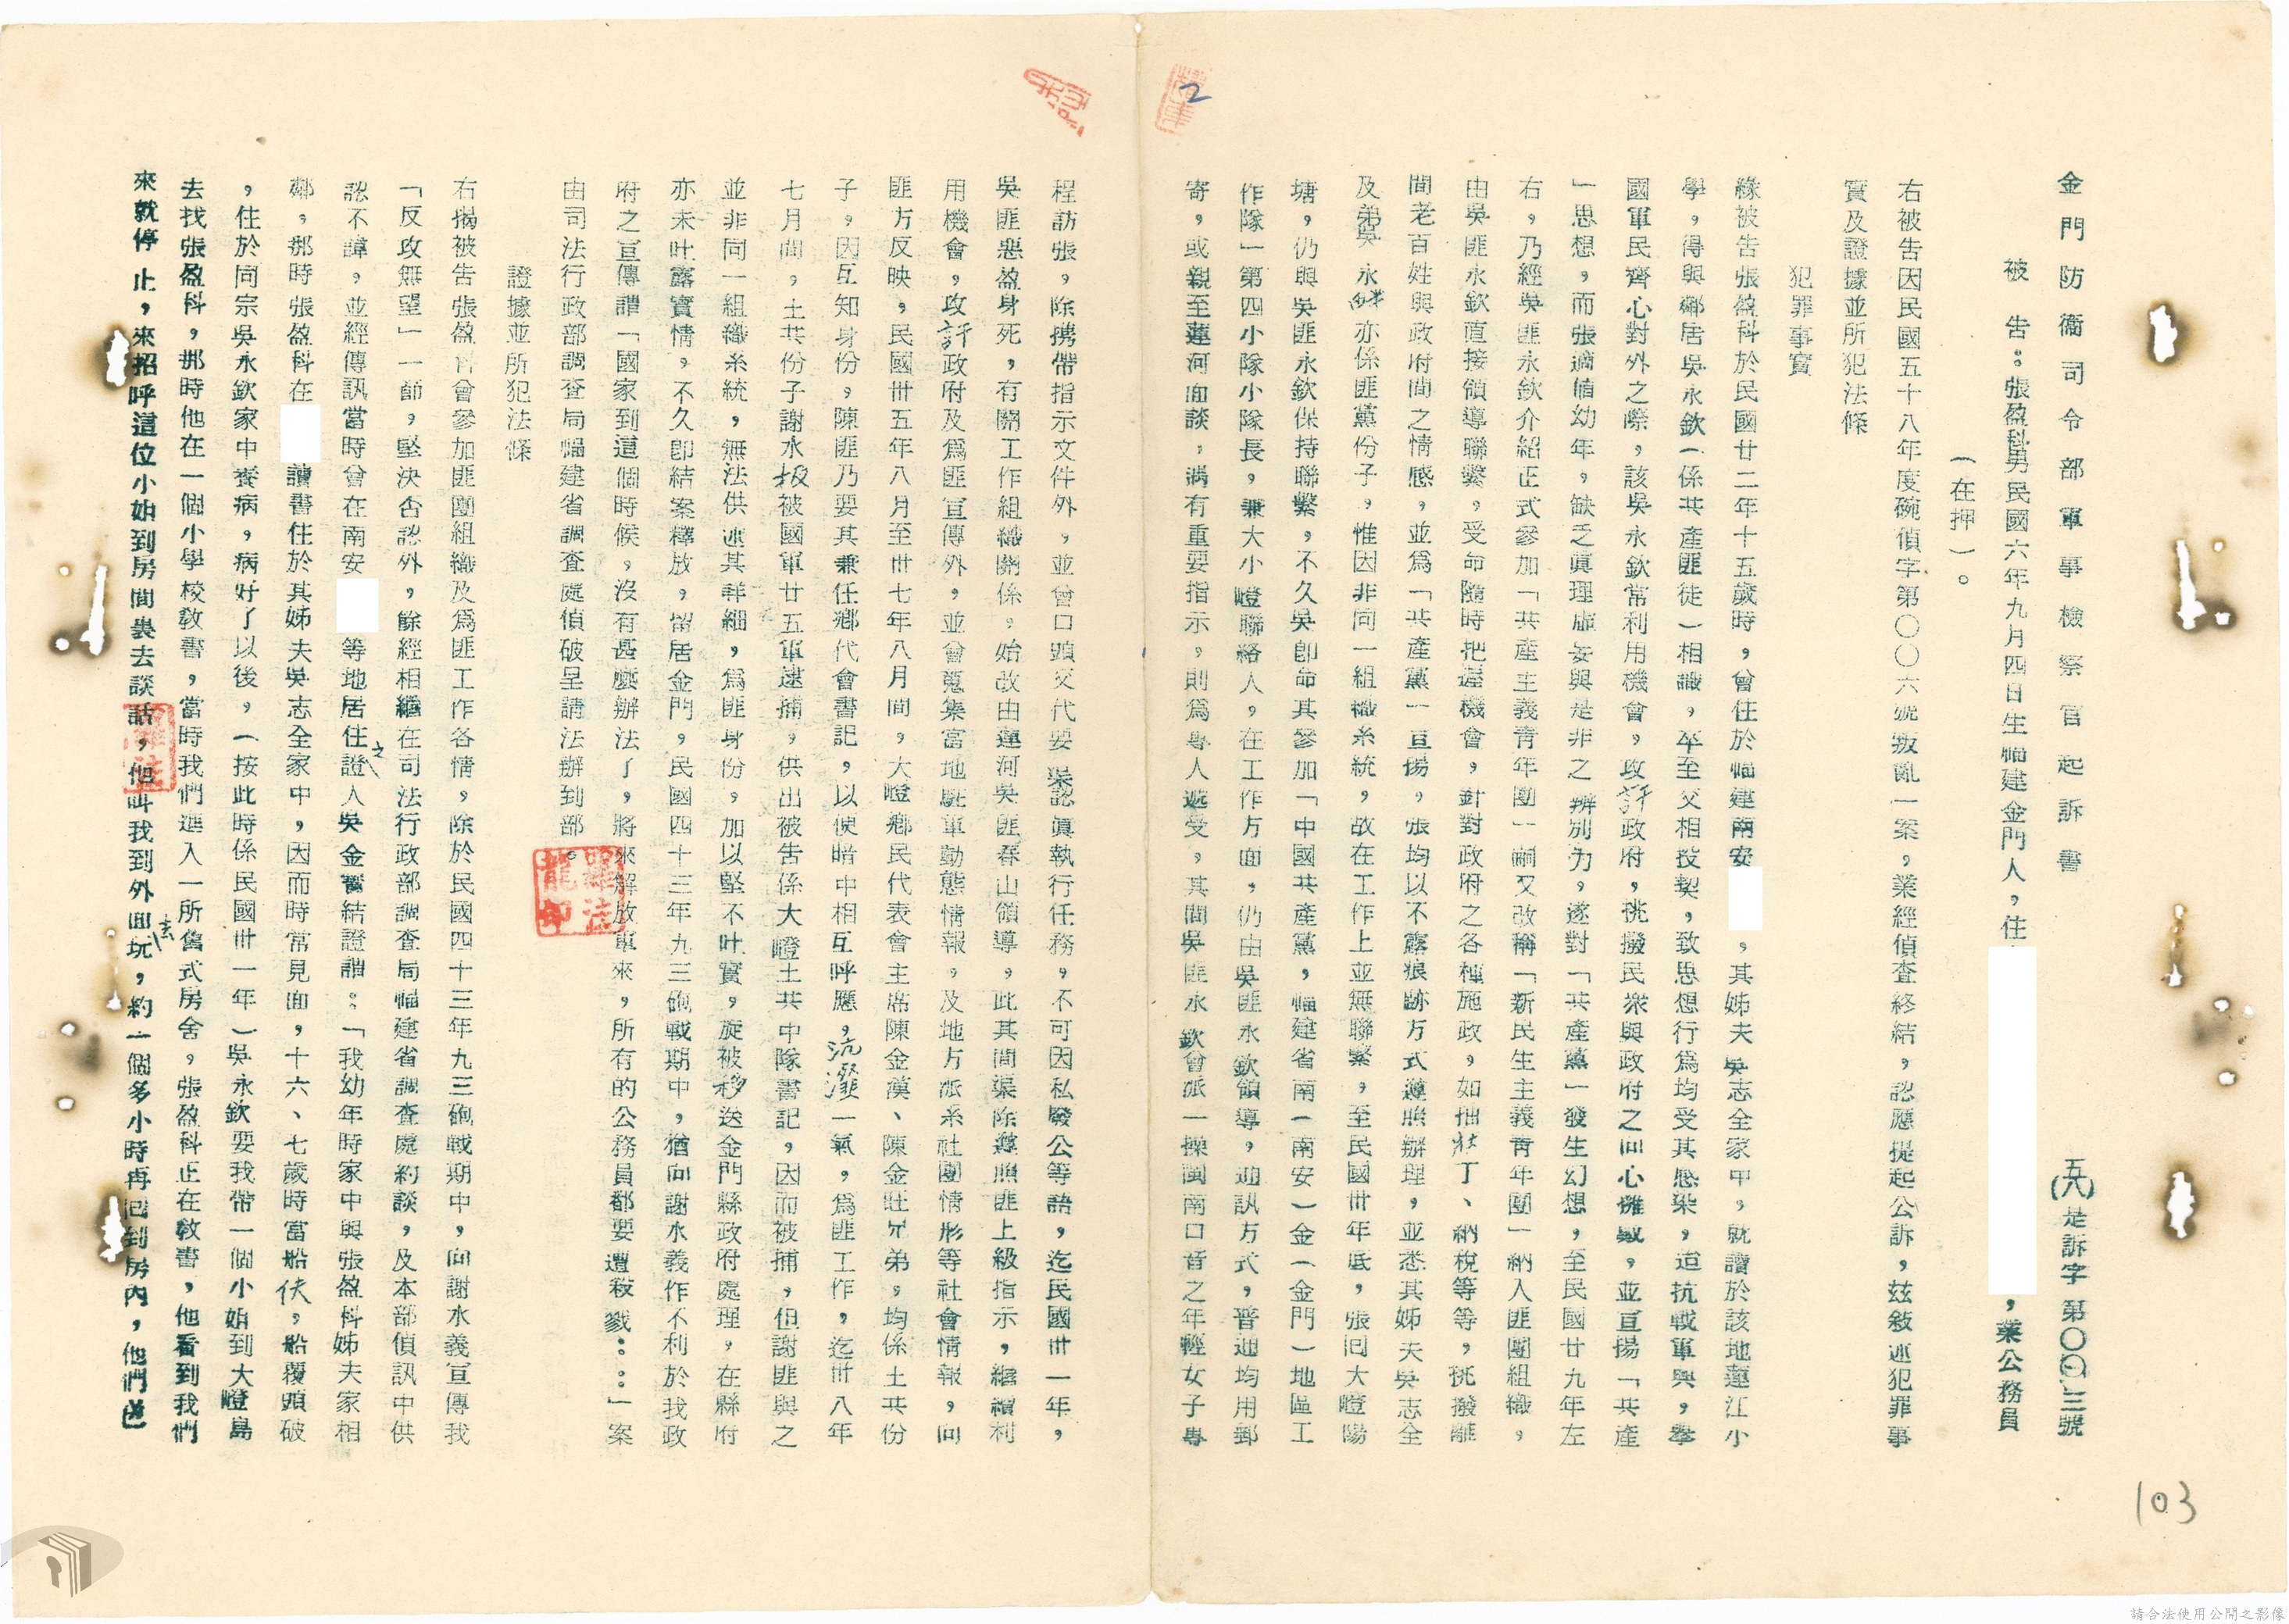 金門防衞司令部軍事檢察官起訴書
五(八)是訴字第〇〇三號
被告：張盈科男民國六年九月四日生福建金門人，住
，業公務員
（在押）。
右被告因民國五十八年度碗偵字第〇〇六號叛亂一案，業經偵查終結，認應提起公訴，茲敍述犯罪事
實及證據並所犯法條
犯罪事實
緣被告張盈科於民國廿二年十五歲時，曾住於福建南安
，其姊夫吳志全家中，就讀於該地蓮江小
學，得與鄰居吳永欽（係共產匪徒）相識，卒至父相投契，致思想行爲均受其感染，迨抗戰軍興，舉
國軍民齊心對外之際，該吳永欽常利用機會，攻訐政府，挑撥民衆與政府之向心擁戴，並宣揚「共產
」思想，而張適値幼年，缺乏眞理虛妄與是非之辨別力，遂對「共產黨」發生幻想，至民國廿九年左
右，乃經吳匪永欽介紹正式參加「共產主義靑年團」嗣又改稱「新民生主義靑年團」納入匪團組織，
由吳匪永欽直接領導聯繫，受命隨時把握機會，針對政府之各種施政，如抽壯丁、納稅等等，挑撥離
間老百姓與政府間之情感，並爲「共產黨」宣揚，張均以不露痕跡方式遵照辦理，並悉其姊夫吳志全
及弟吳永 亦係匪黨份子，惟因非同一組織系統，故在工作上並無聯繫，至民國卅年底，張囘大嶝陽
塘，仍與吳匪永欽保持聯繫，不久吳卽命其參加「中國共產黨，福建省南（南安）金（金門）地區工
作隊」第四小隊小隊長，兼大小嶝聯絡人，在工作方面，仍由吳匪永欽領導，通訊方式，普通均用郵
寄，或親至蓮河面談，遇有重要指示，則爲專人遞受，其間吳匪永欽曾派一操閩南口音之年輕女子專
程訪張，除携帶指示文件外，並曾口頭交代要渠認眞執行任務，不可因私廢公等語，迄民國卅一年，
吳匪惡盈身死，有關工作組織關係，始改由蓮河吳匪春山領導，此其間渠除遵照匪上級指示，繼續利
用機會，攻訐政府及爲匪宣傳外，並曾蒐集當地駐軍動態情報，及地方派系社團情形等社會情報，向
匪方反映，民國卅五年八月至卅七年八月間，大嶝鄕民代表會主席陳金漢、陳金旺兄弟，均係土共份
子，因互知身份，陳匪乃要其兼任鄕代會書記，以便暗中相互呼應，沆瀣一氣，爲匪工作，迄卅八年
七月間，土共份子謝水扳被國軍廿五軍逮捕，供出被告係大嶝土共中隊書記，因而被捕，但謝匪與之
並非同一組織系統，無法供述其詳細，爲匪身份，加以堅不吐實，旋被移送金門縣政府處理，在縣府
亦未吐露實情，不久卽結案釋放，留居金門，民國四十三年九三砲戰期中，猶向謝水義作不利於我政
府之宣傳謂「國家到這個時候，沒有甚麼辦法了，將來解放軍來，所有的公務員都要遭殺戮：：：」案
由司法行政部調查局福建省調查處偵破呈請法辦到部。
證據並所犯法條
右揭被告張盈科曾參加匪團組織及爲匪工作各情，除於民國四十三年九三砲戰期中，向謝水義宣傳我
「反攻無望」一節，堅決否認外，餘經相繼在司法行政部調查局福建省調查處約談，及本部偵訊中供
認不諱，並經傳訊當時曾在南安
等地居住之證人吳金 結證謂：「我幼年時家中與張盈科姊夫家相
鄰，那時張盈科在
讀書住於其姊夫吳志全家中，因而時常見面，十六、七歲時當船伕，船覆頭破
，住於同宗吳永欽家中養病，病好了以後，（按此時係民國卅一年）吳永欽要我帶一個小姐到大嶝島
去找張盈科，那時他在一個小學校敎書，當時我們進入一所舊式房舍，張盈科正在敎書，他看到我們
來就停止，來招呼這位小姐到房間裏去談話，他叫我到外面去玩，約一個多小時再囘到房內，他們 
羅法龍印
2
103
請合法使用公開之影像